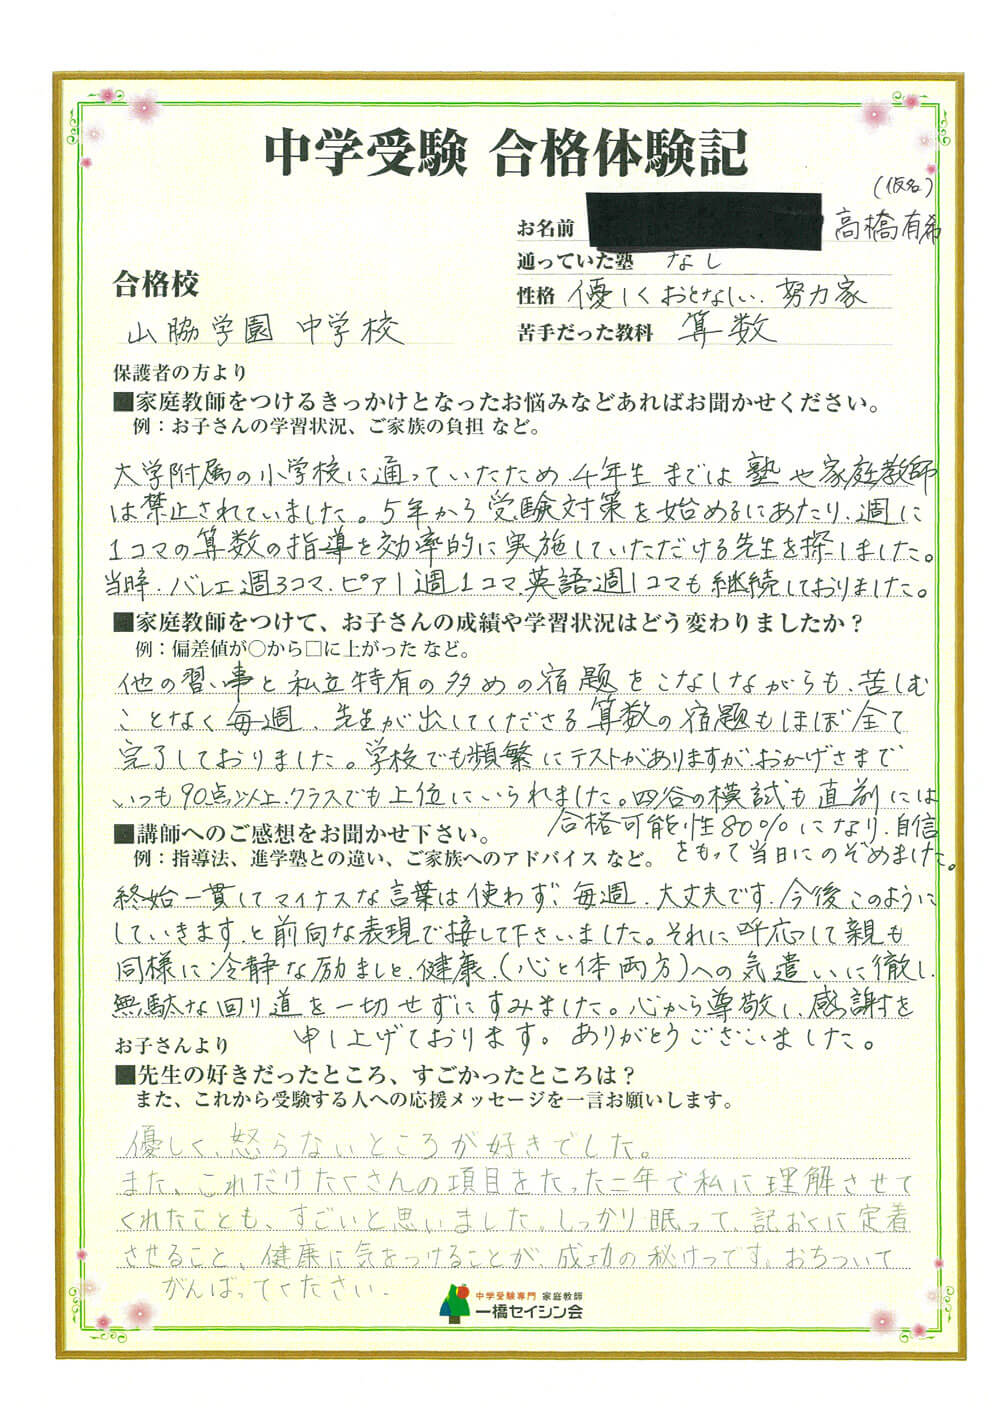 中学受験 合格体験記
(仮名)
お名前 高橋有希
通っていた塾 なし
合格校
性格 優しくおとなしい、努力家
山脇学園 中学校
苦手だった教科 算数
保護者の方より
■家庭教師をつけるきっかけとなったお悩みなどあればお聞かせください。
例：お子さんの学習状況、ご家族の負担 など。
大学附属の小学校に通っていたため、4年生までは塾や家庭教師
は禁止されていました。5年から受験対策を始めるにあたり、週に
1コマの算数の指導を効率的に実施していただける先生を探しました。
当時、バレエ週3コマ、ピアノ週1コマ、英語週1コマも継続しておりました。
■家庭教師をつけて、お子さんの成績や学習状況はどう変わりましたか？
例：偏差値が○から□に上がった など。
他の習い事と私立特有の多めの宿題をこなしながらも、苦しむ
ことなく毎週、先生が出してくださる算数の宿題もほぼ全て
完了しておりました。学校でも頻繁にテストがありますが、おかげさまで
いつも90点以上、クラスでも上位にいられました。四谷の模試も直前には
合格可能性80%になり、自信
をもって当日にのぞめました。
■講師へのご感想をお聞かせ下さい。
例：指導法、進学塾との違い、ご家族へのアドバイス など。
終始一貫してマイナスな言葉は使わず、毎週、大丈夫です、今後このように
していきます、と前向な表現で接して下さいました。それに呼応して親も
同様に冷静な励ましと、健康、(心と体両方)への気遣いに徹し、
無駄な回り道を一切せずにすみました。心から尊敬し、感謝を
申し上げております。ありがとうございました。
お子さんより
■先生の好きだったところ、すごかったところは？
また、これから受験する人への応援メッセージを一言お願いします。
優しく、怒らないところが好きでした。
また、これだけたくさんの項目をたった二年で私に理解させて
くれたことも、すごいと思いました。しっかり眠って、記おくに定着
させること、健康に気をつけることが、成功の秘けつです。おちついて
がんばってください。
中学受験専門 家庭教師
一橋セイシン会